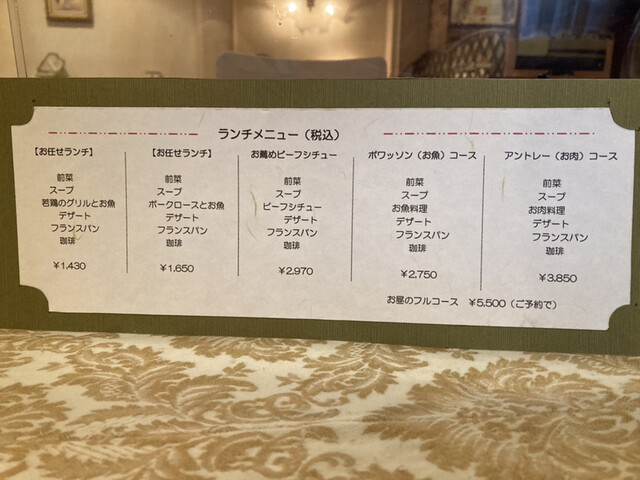 ランチメニュー（税込）
【お任せランチ】
前菜
スープ
若鶏のグリルとお魚
デザート
フランスパン
珈琲
￥1.430
【お任せランチ】
前菜
スープ
ポークロースとお魚
デザート
フランスパン
珈琲
￥1.650
お薦めビーフシチュー
前菜
スープ
ビーフシチュー
デザート
フランスパン
珈琲
￥2.970
ポワッソン（お魚）コース
前菜
スープ
お魚料理
デザート
フランスパン
珈琲
￥2.750
アントレー（お肉）コース
前菜
スープ
お肉料理
デザート
フランスパン
珈琲
￥3.850
お昼のフルコース　￥5,500（ご予約で）